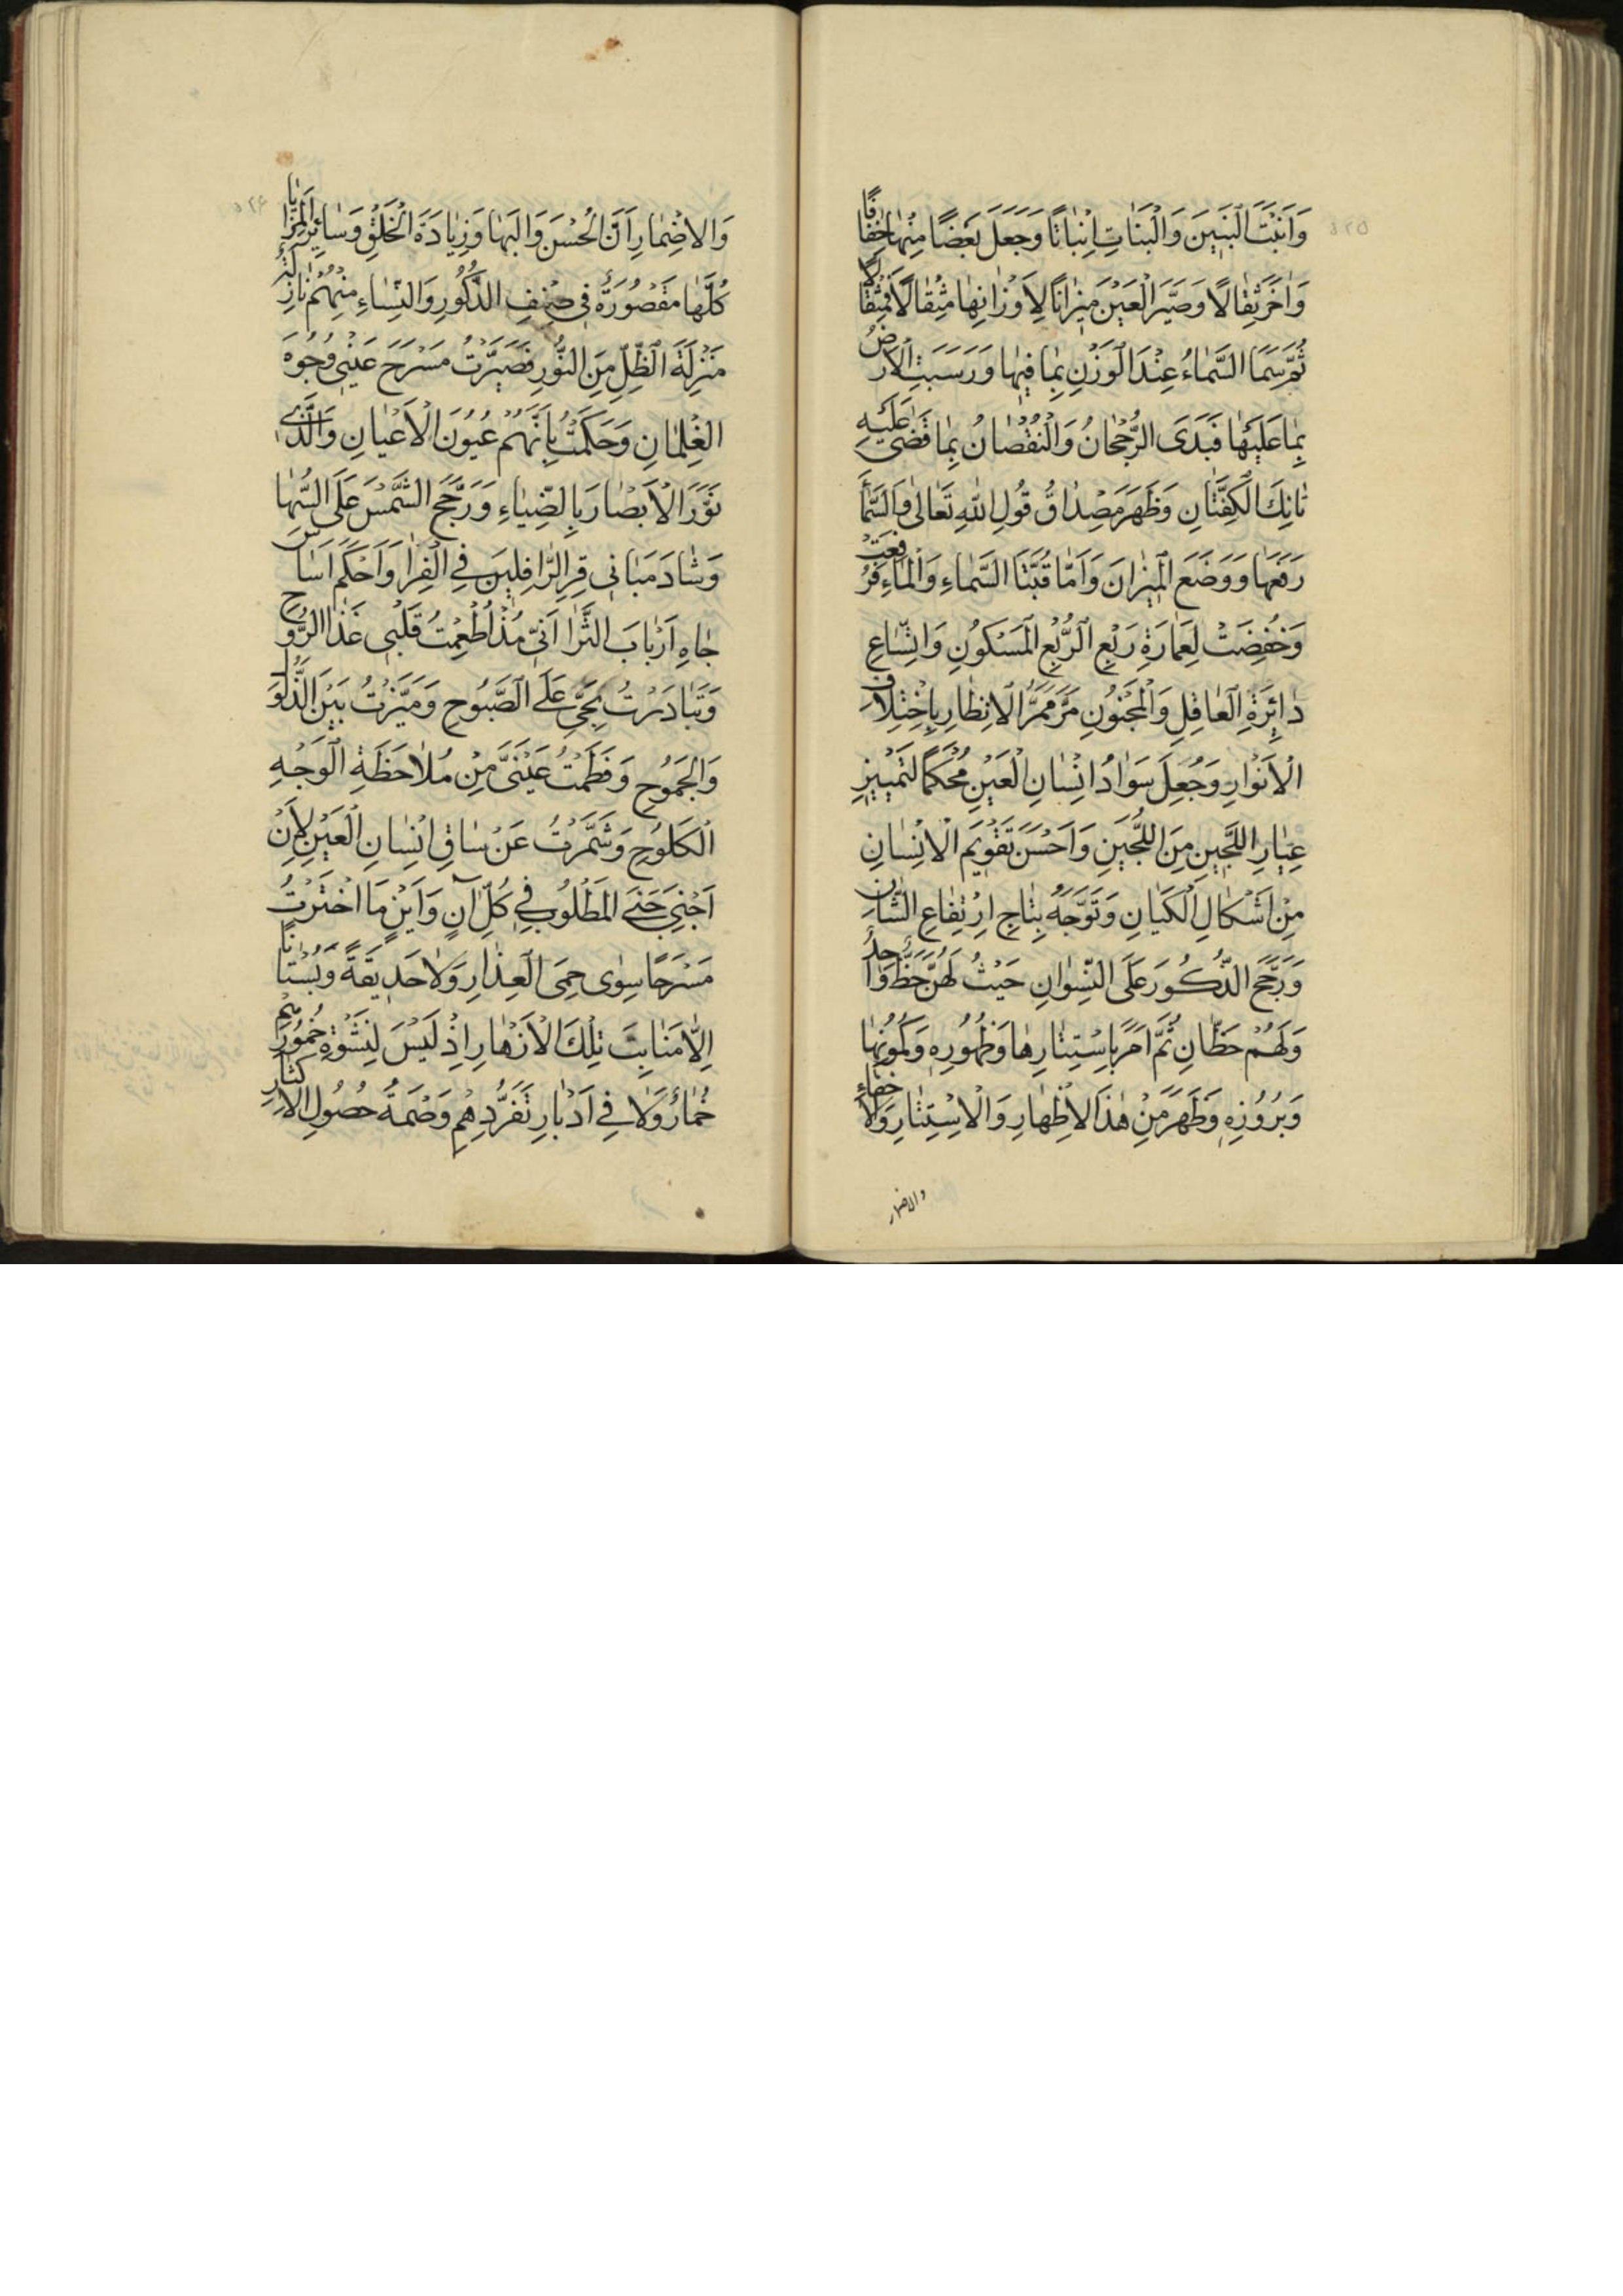 ٥٢٥
وَاَنْبَتَ الْبَنِينَ وَالْبَنَاتِ اِنْبَاتًا وَجَعَلَ بَعْضًا مِنْهَا خِفَافًا
وَاُخَرَ ثِقَالًا وَصَيَّرَ الْعَيْنَ مِيزَانًا لِاَوْزَانِهَا مِثْقَالًا فَمِثْقَالًا
ثُمَّ سَمَا السَّمَاءُ عِنْدَ الْوَزْنِ بِمَا فِيهَا وَرَسَبَتِ الْاَرْضُ
بِمَا عَلَيْهَا فَبَدَى الرُّجْحَانُ وَالْنُقْصَانُ بِمَا قَضَى عَلَيْهِ
تَانِكَ الْكِفَّتَانِ وَظَهَرَ مِصْدَاقُ قُولِ اللهِ تَعَالٰى وَالسَّمَاءَ
رَفَعَهَا وَوَضَعَ الْمِيزَانَ وَاَمَّا قُبَّتَا السَّمَاءِ وَالْمَاءِ فَرُفِعَتْ
وَخُفِضَتْ لِعَمَارَةِ رَبْعِ الرُّبْعِ الْمَسْكُونِ وَاتِّسَاعِ
دَائِرَةِ الْعَاقِلِ وَالْمَجْنُونِ مَرَّ مَمَرُّ الْانْظَارِ بِاِخْتِلَافِ
الْاَنْوَارِ وَجُعِلَ سَوَادُ اِنْسَانِ الْعَيْنِ مُحَكَّمًا لِتَمْيِيزِ
عِيَارِ اللَّجِينِ مِنَ اللُّجَيْنِ وَاَحْسَنَ تَقْوِيمَ الْاِنْسَانِ
مِنْ اَشْكَالِ الْكَيَانِ وَتَوَّجَهُ بِتَاجِ اِرْتِفَاعِ الشَّانِ
وَرَجَّحَ الذُّكُورَ عَلَى النِّسْوَانِ حَيْثُ لَهُنَّ حَظٌّ وَاحِدٌ
وَلَهُمْ حَظَّانِ ثُمَّ اَمَرَ بِاِسْتِتَارِهَا وَظُهُورِهِ وَكُمُونِهَا
وَبُرُوزِهِ وَظَهَرَ مِنْ هٰذَا الْاِظْهَارِ وَالْاِسْتِتَارِ وَلَا خِفَاءَ
والاضمار
٥٢٦
وَالاضْمَارِ اَنَّ الْحُسْنَ وَالْبَهَا وَزِيَادَةَ الْخَلْقِ وَسَائِرَ الْمَزَايَا
كُلَّهَا مَقْصُورَةٌ فِي صِنْفِ الذُّكُورِ وَالنِّسَاءِ مِنْهُمْ نَازِلَةٌ
مَنْزِلَةَ الظِّلِّ مِنَ النُّورِ فَصَيَّرْتُ مَسْرَحَ عَيْنِي وُجُوهَ
الْغِلْمَانِ وَحَكَمْتُ بِاَنَّهُمْ عُيُونُ الْاَعْيَانِ وَالَّذِي
نَوَّرَ الْاَبْصَارَ بِالضِّيَاءِ وَرَجَّحَ الشَّمْسَ عَلَى السُّهَا
وَشَادَ مَبَانِي قِرِ الرَّافِلِينَ فِي الْفِرَا وَاَحْكَمَ اَسَاسَ
جَاهِ اَرْبَابَ الثَّرَا اَنِّي مُذْ اُطْعِمْتُ قَلْبِي غَذَا الرُّوحِ
وَتَبَادَرْتُ بِحَيَّ عَلَى الصَّبُوحِ وَمَيَّزْتُ بَيْنَ الذَّلُولِ
وَالْجَمُوحِ وَفَطَمْتُ عَيْنَيَّ مِنْ مُلَاحَظَةِ الْوَجْهِ
الْكَلُوحِ وَشَمَّرْتُ عَنْ سَاقِ اِنْسَانِ الْعَيْنِ لِاَنْ
اَجْنِيَ جَنَى الْمَطْلُوبِ فِي كُلِّ آنٍ وَاَيْنٍ مَا اخْتَرْتُ
مَسْرَحًا سِوَى حِمَى الْعِذَارِ وَلَا حَدِيقَةً وَبُسْتَانًا
اِلَّا مَنَابِتَ تِلْكَ الْاَزْهَارِ اِذْ لَيْسَ لِنَشْوَةِ خُمُورِهِمْ
خُمَارٌ وَلَا فِي اَدْبَارِ تَفَرُّدِهِمْ وَصْمَةُ حُصُولِ الْاِكْثَارِ